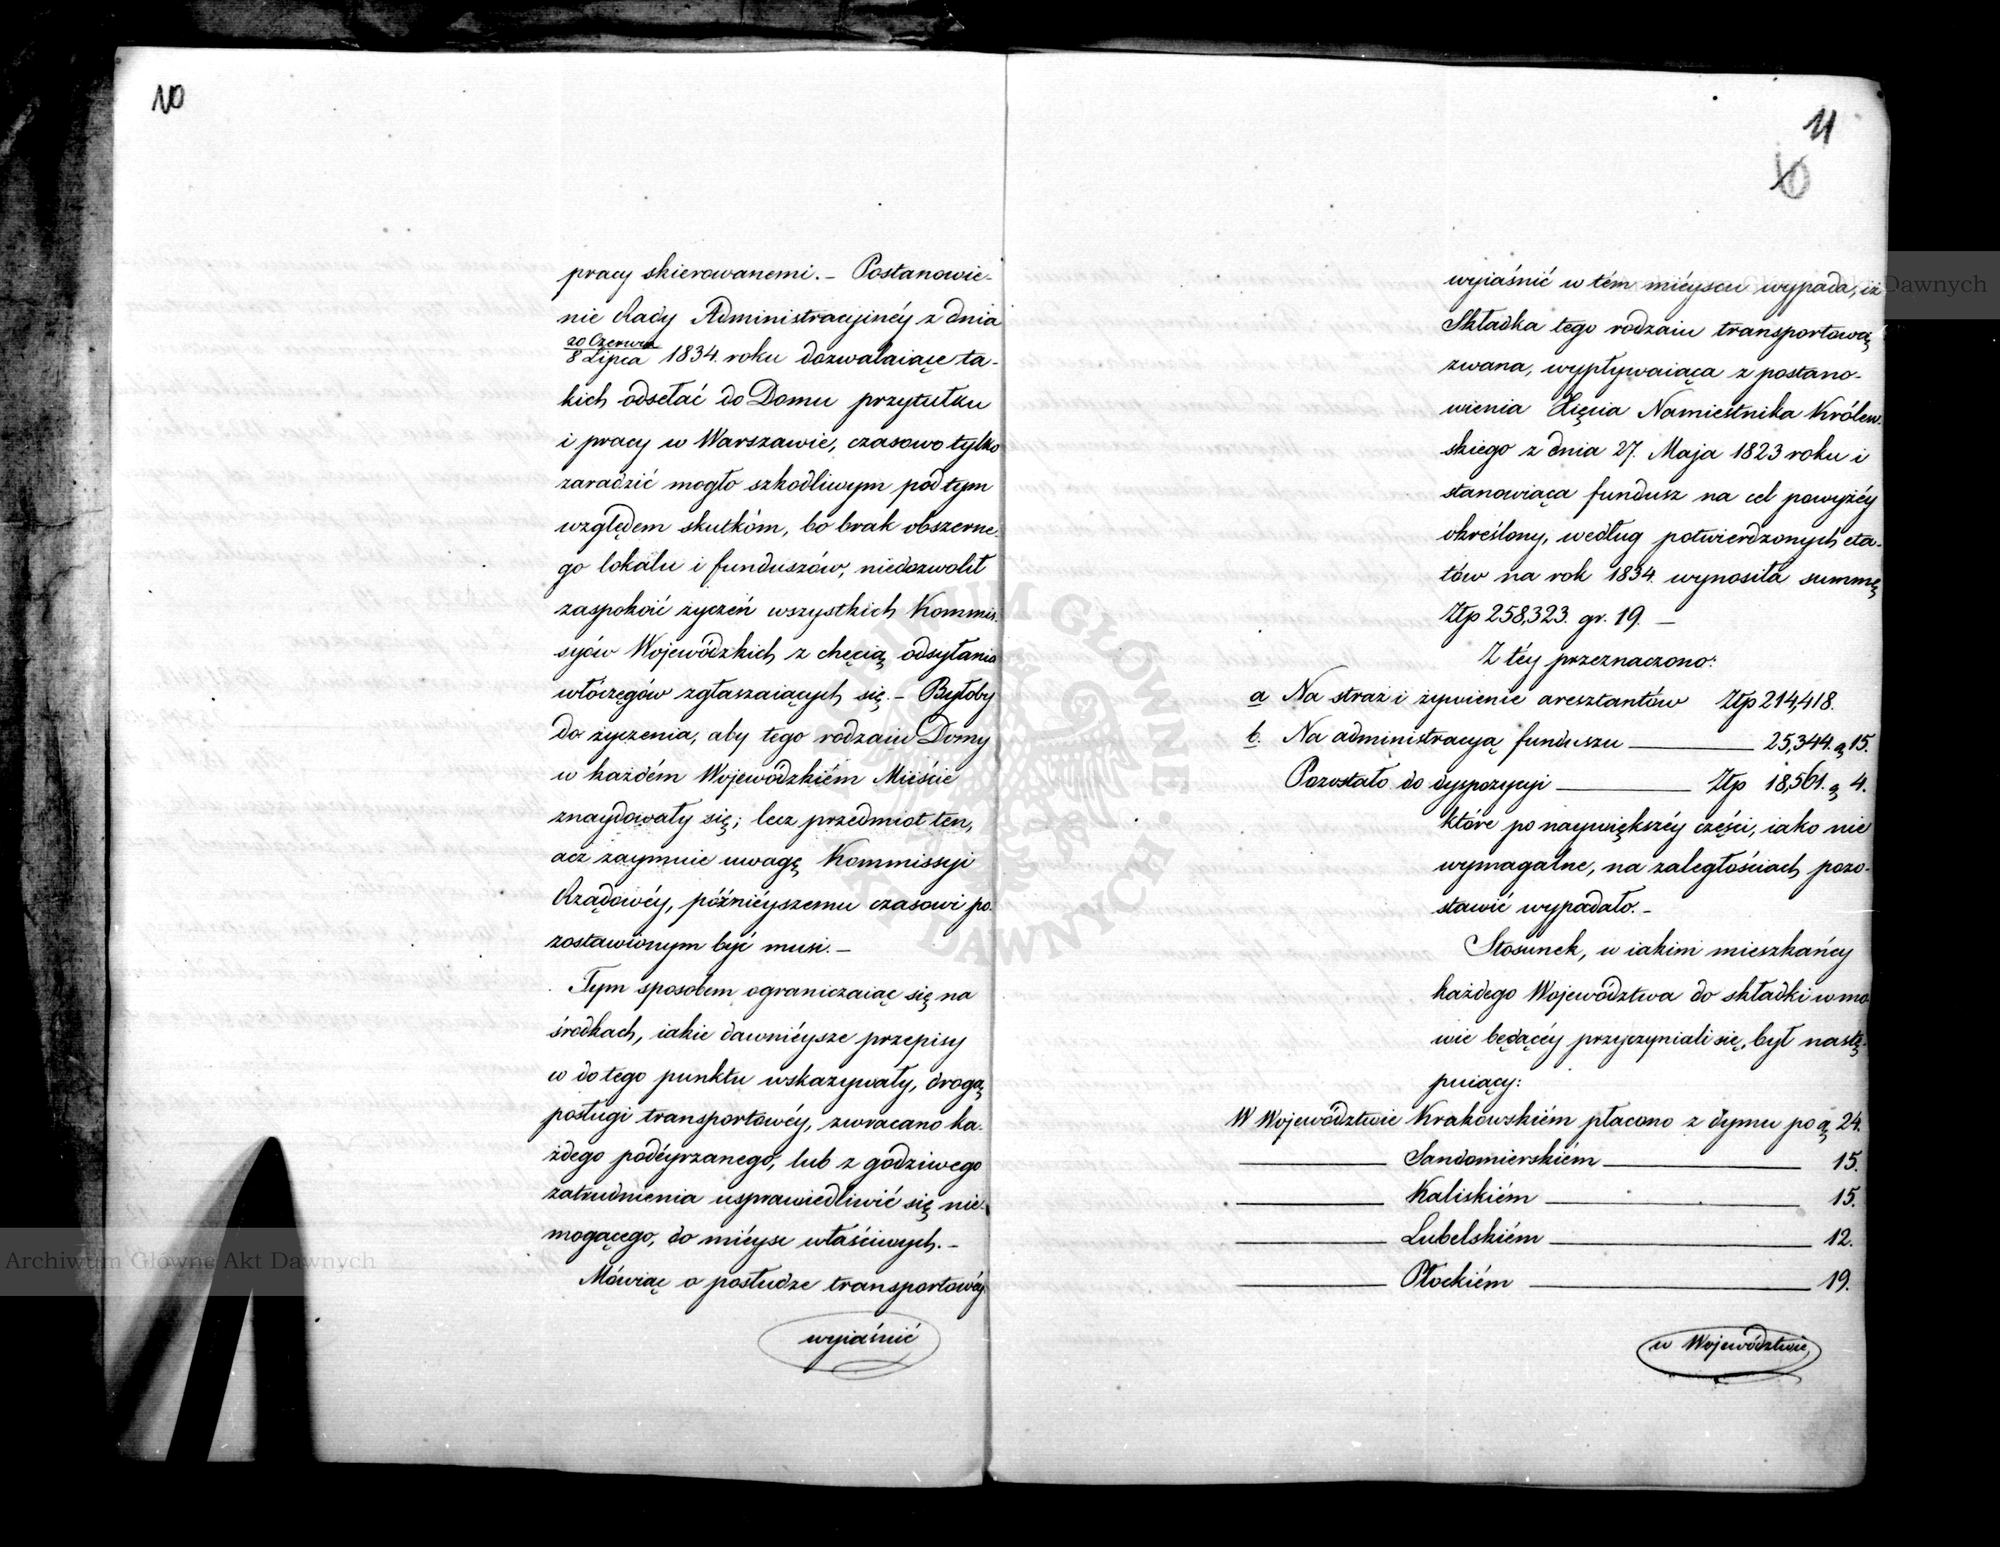 10
pracy skierowanemi. – Postanowie-
nie Rady Administracyjnéy z dnia
20 Czerwca
8 Lipca 1834. roku dozwalaiące ta-
kich odsełać do Domu przytułku
i pracy w Warszawie, czasowo tylko
zaradzić mogło szkodliwym pod tym
względem skutkóm, bo brak obszerne-
go lokalu i funduszów, niedozwolił
zaspokoić życzeń wszystkich Kommis-
syów Wojewódzkich z chęcią odsyłania
włóczęgów zgłaszaiących się. – Byłoby
do życzenia, aby tego rodzaiu Domy
w każdém Wojewódzkiém Mieście
znaydowały się; lecz przedmiot ten,
acz zaymuie uwagę Kommissyi
Rządowéy, późnieyszemu czasowi po-
zostawionym być musi. –
Tym sposobem ograniczaiąc się na
środkach, iakie dawnieysze przepisy
w do tego punktu wskazywały, drogą
posługi transportowéy, zwracano ka-
żdego podéyrzanego, lub z godziwego
zatrudnienia usprawiedliwić się nie-
mogącego, do mieysc właściwych. –
Mówiąc o posłudze transportowéy
wyiaśnić
11
10
wyiaśnić w tém mieyscu wypada, iż
Składka tego rodzaiu transportową
zwana, wypływaiąca z postano-
wienia Xięcia Namiestnika Królew-
skiego z dnia 27. Maja 1823 roku i
stanowiąca fundusz na cel powyżéy
określony, według potwierdzonych eta-
tów na rok 1834. wynosiła summę
Złp 258,323. gr. 19. –
Z téy przeznaczono:
a Na straż i żywienie aresztantów Złp 214,418.
b. Na administracyą funduszu 25,344. g 15.
Pozostało do dyspozycyi Złp 18,561. g 4.
które po naywiększéy części, iako nie
wymagalne, na zaległościach pozo-
stawić wypadało. –
Stosunek, w iakim mieszkańcy
każdego Województwa do składki w mo-
wie będącéy przyczyniali się, był nastę-
puiący:
W Województwie Krakowskiém płacono z dymu po g 24.
Sandomierskiém 15.
Kaliskiém 15.
Lubelskiém 12.
Płockiém 19.
w Województwie,
Archiwum Główne Akt Dawnych
Archiwum Główne Akt Dawnych
ARCHIWUM GŁÓWNE AKT DAWNYCH